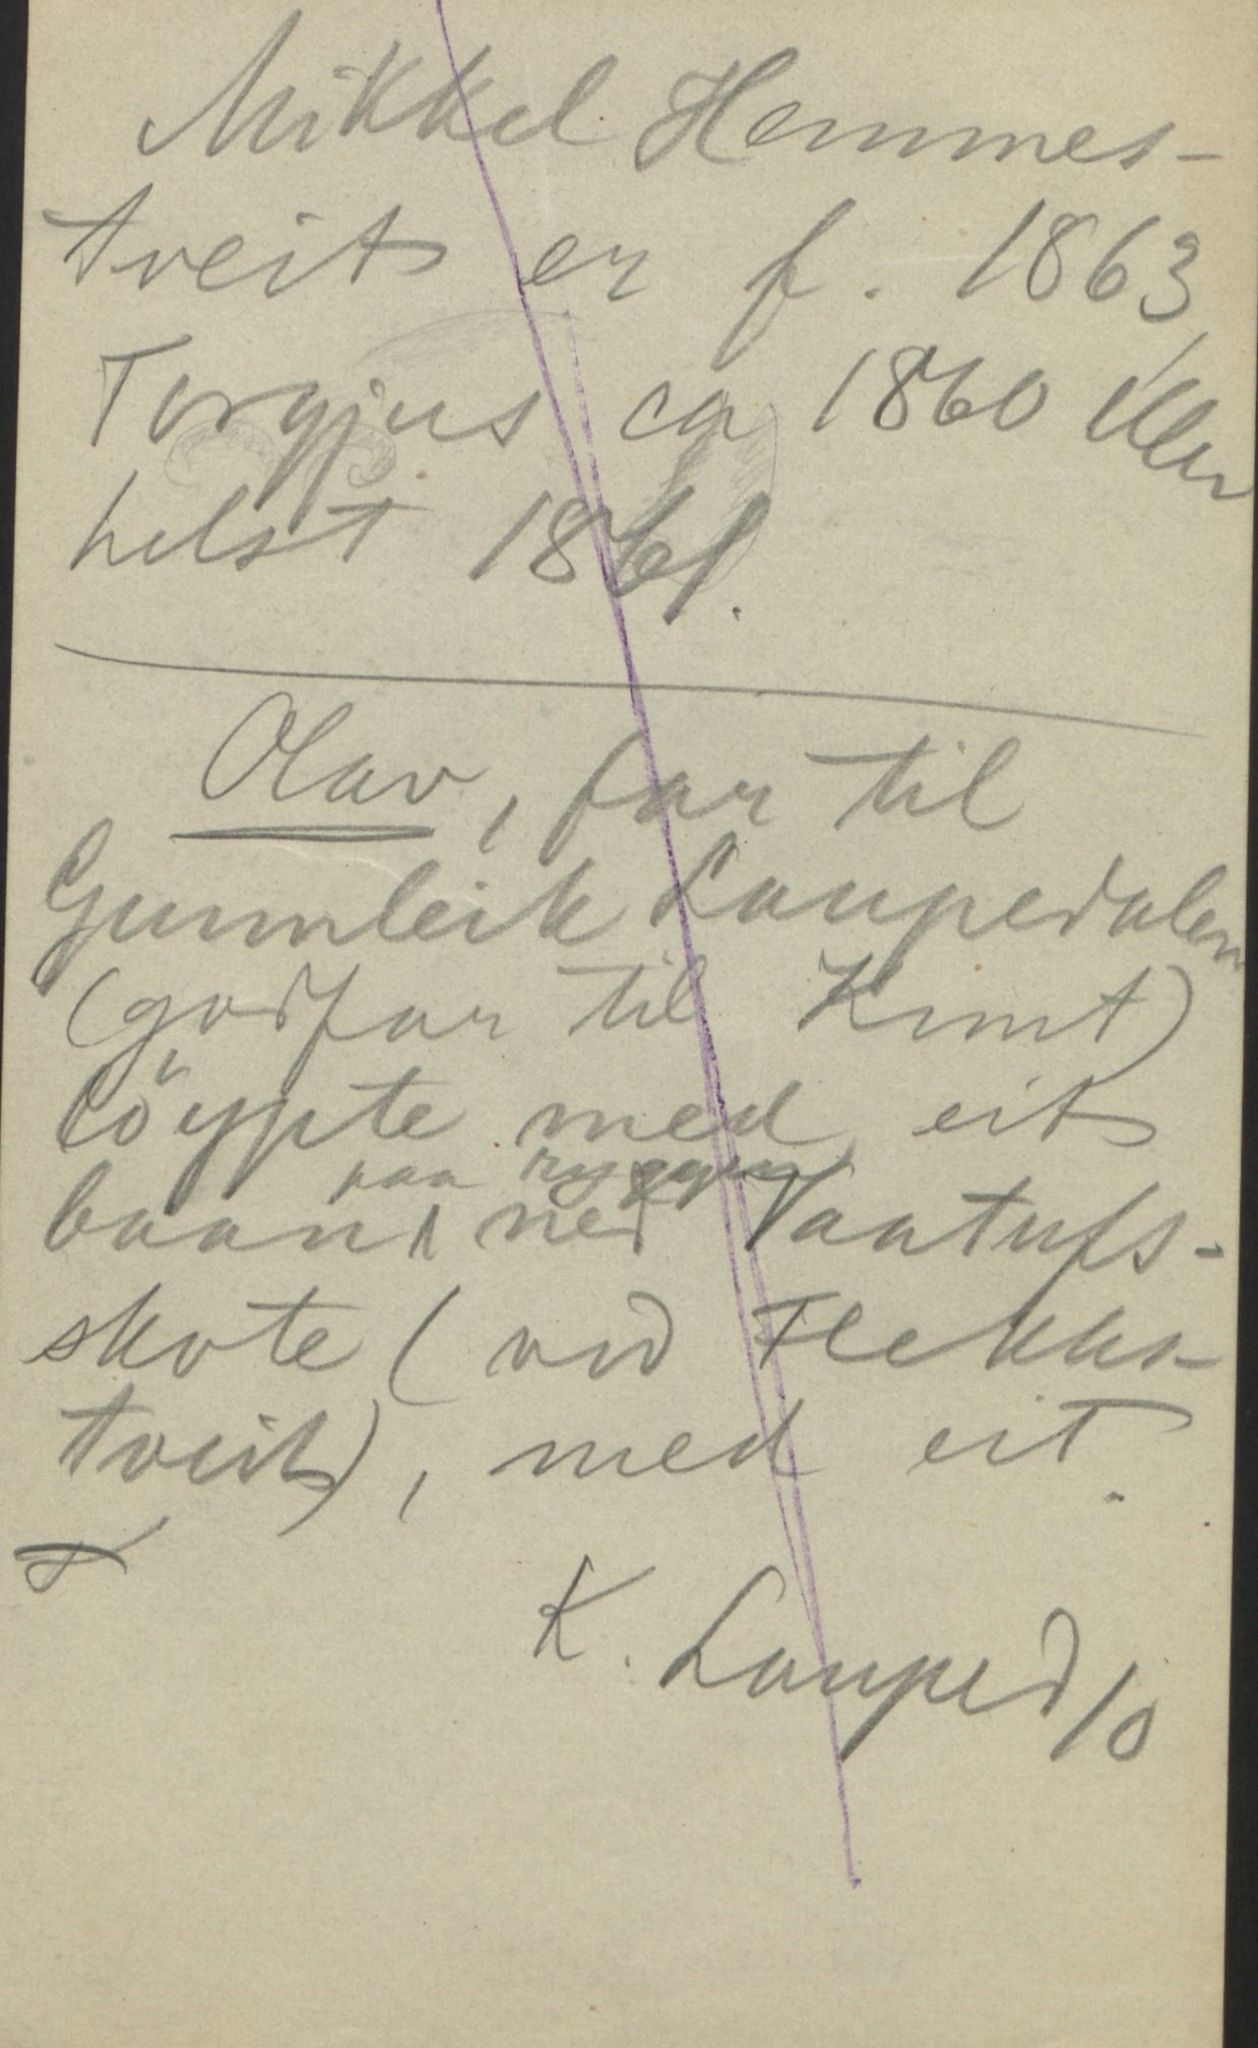 Mikkel Hemmes-
tveit er f. 1863,
Torgjus ca 1860 eller
helst 1861.
Olav, far til
Gunnleik Laupedalen
(godfar til Knut)
löypte med eit
baan paa ryggen ned Vaatufs-
skote (ved Flekks-
tveit), med eit.
K. Lauped 10